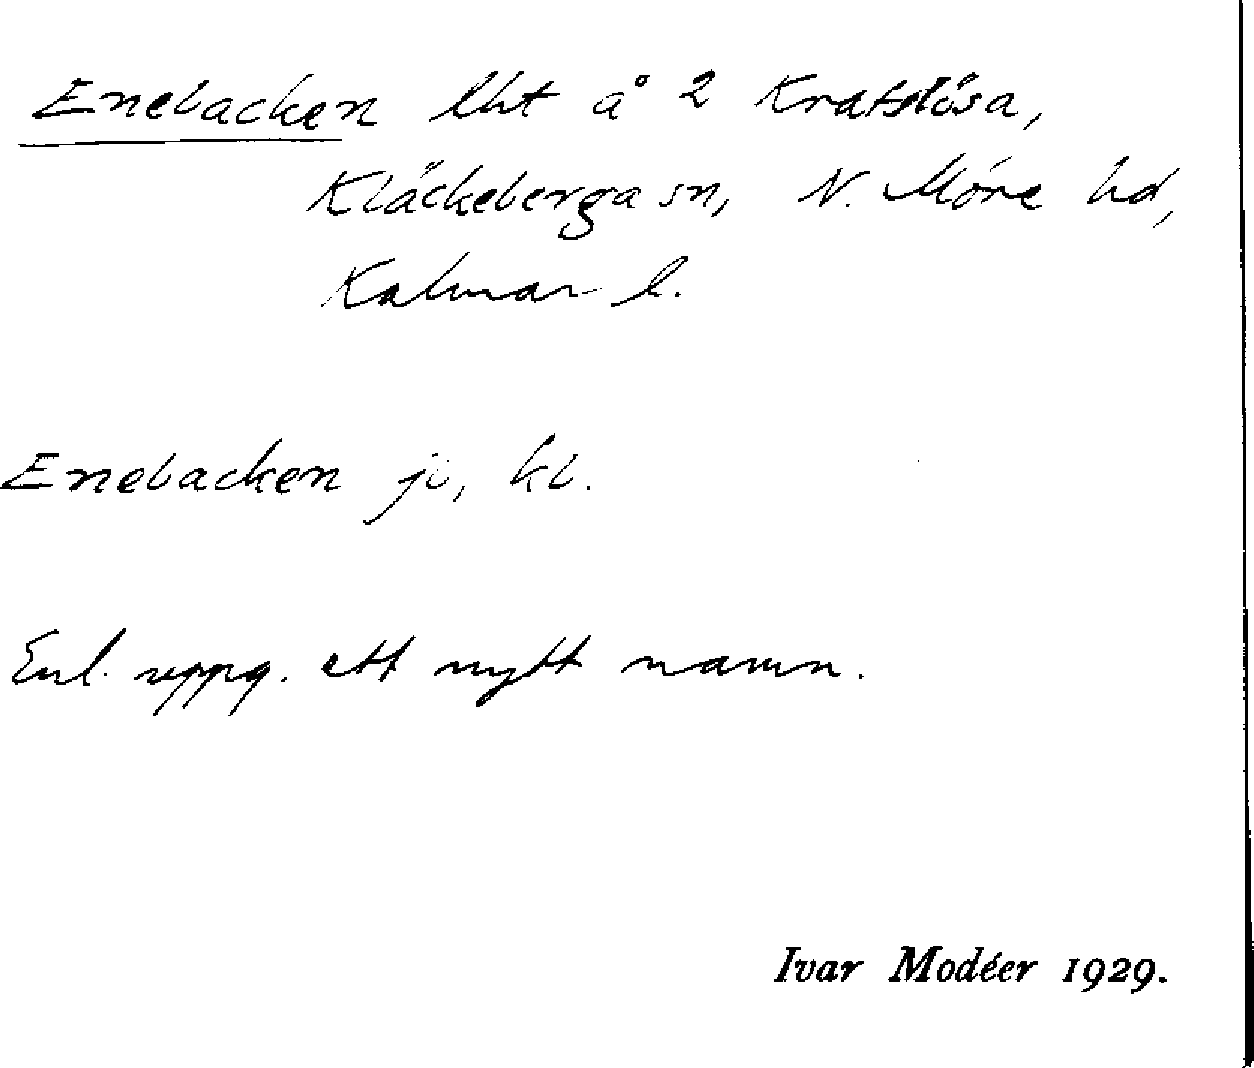 Enebacken lht å 2 Kratslösa,
Kläckeberga sn, N. Möre hd,
Kalmar l.
Enebacken ji, kb.
Enl. uppg. ett nytt namn.
Ivar Modéer 1929.